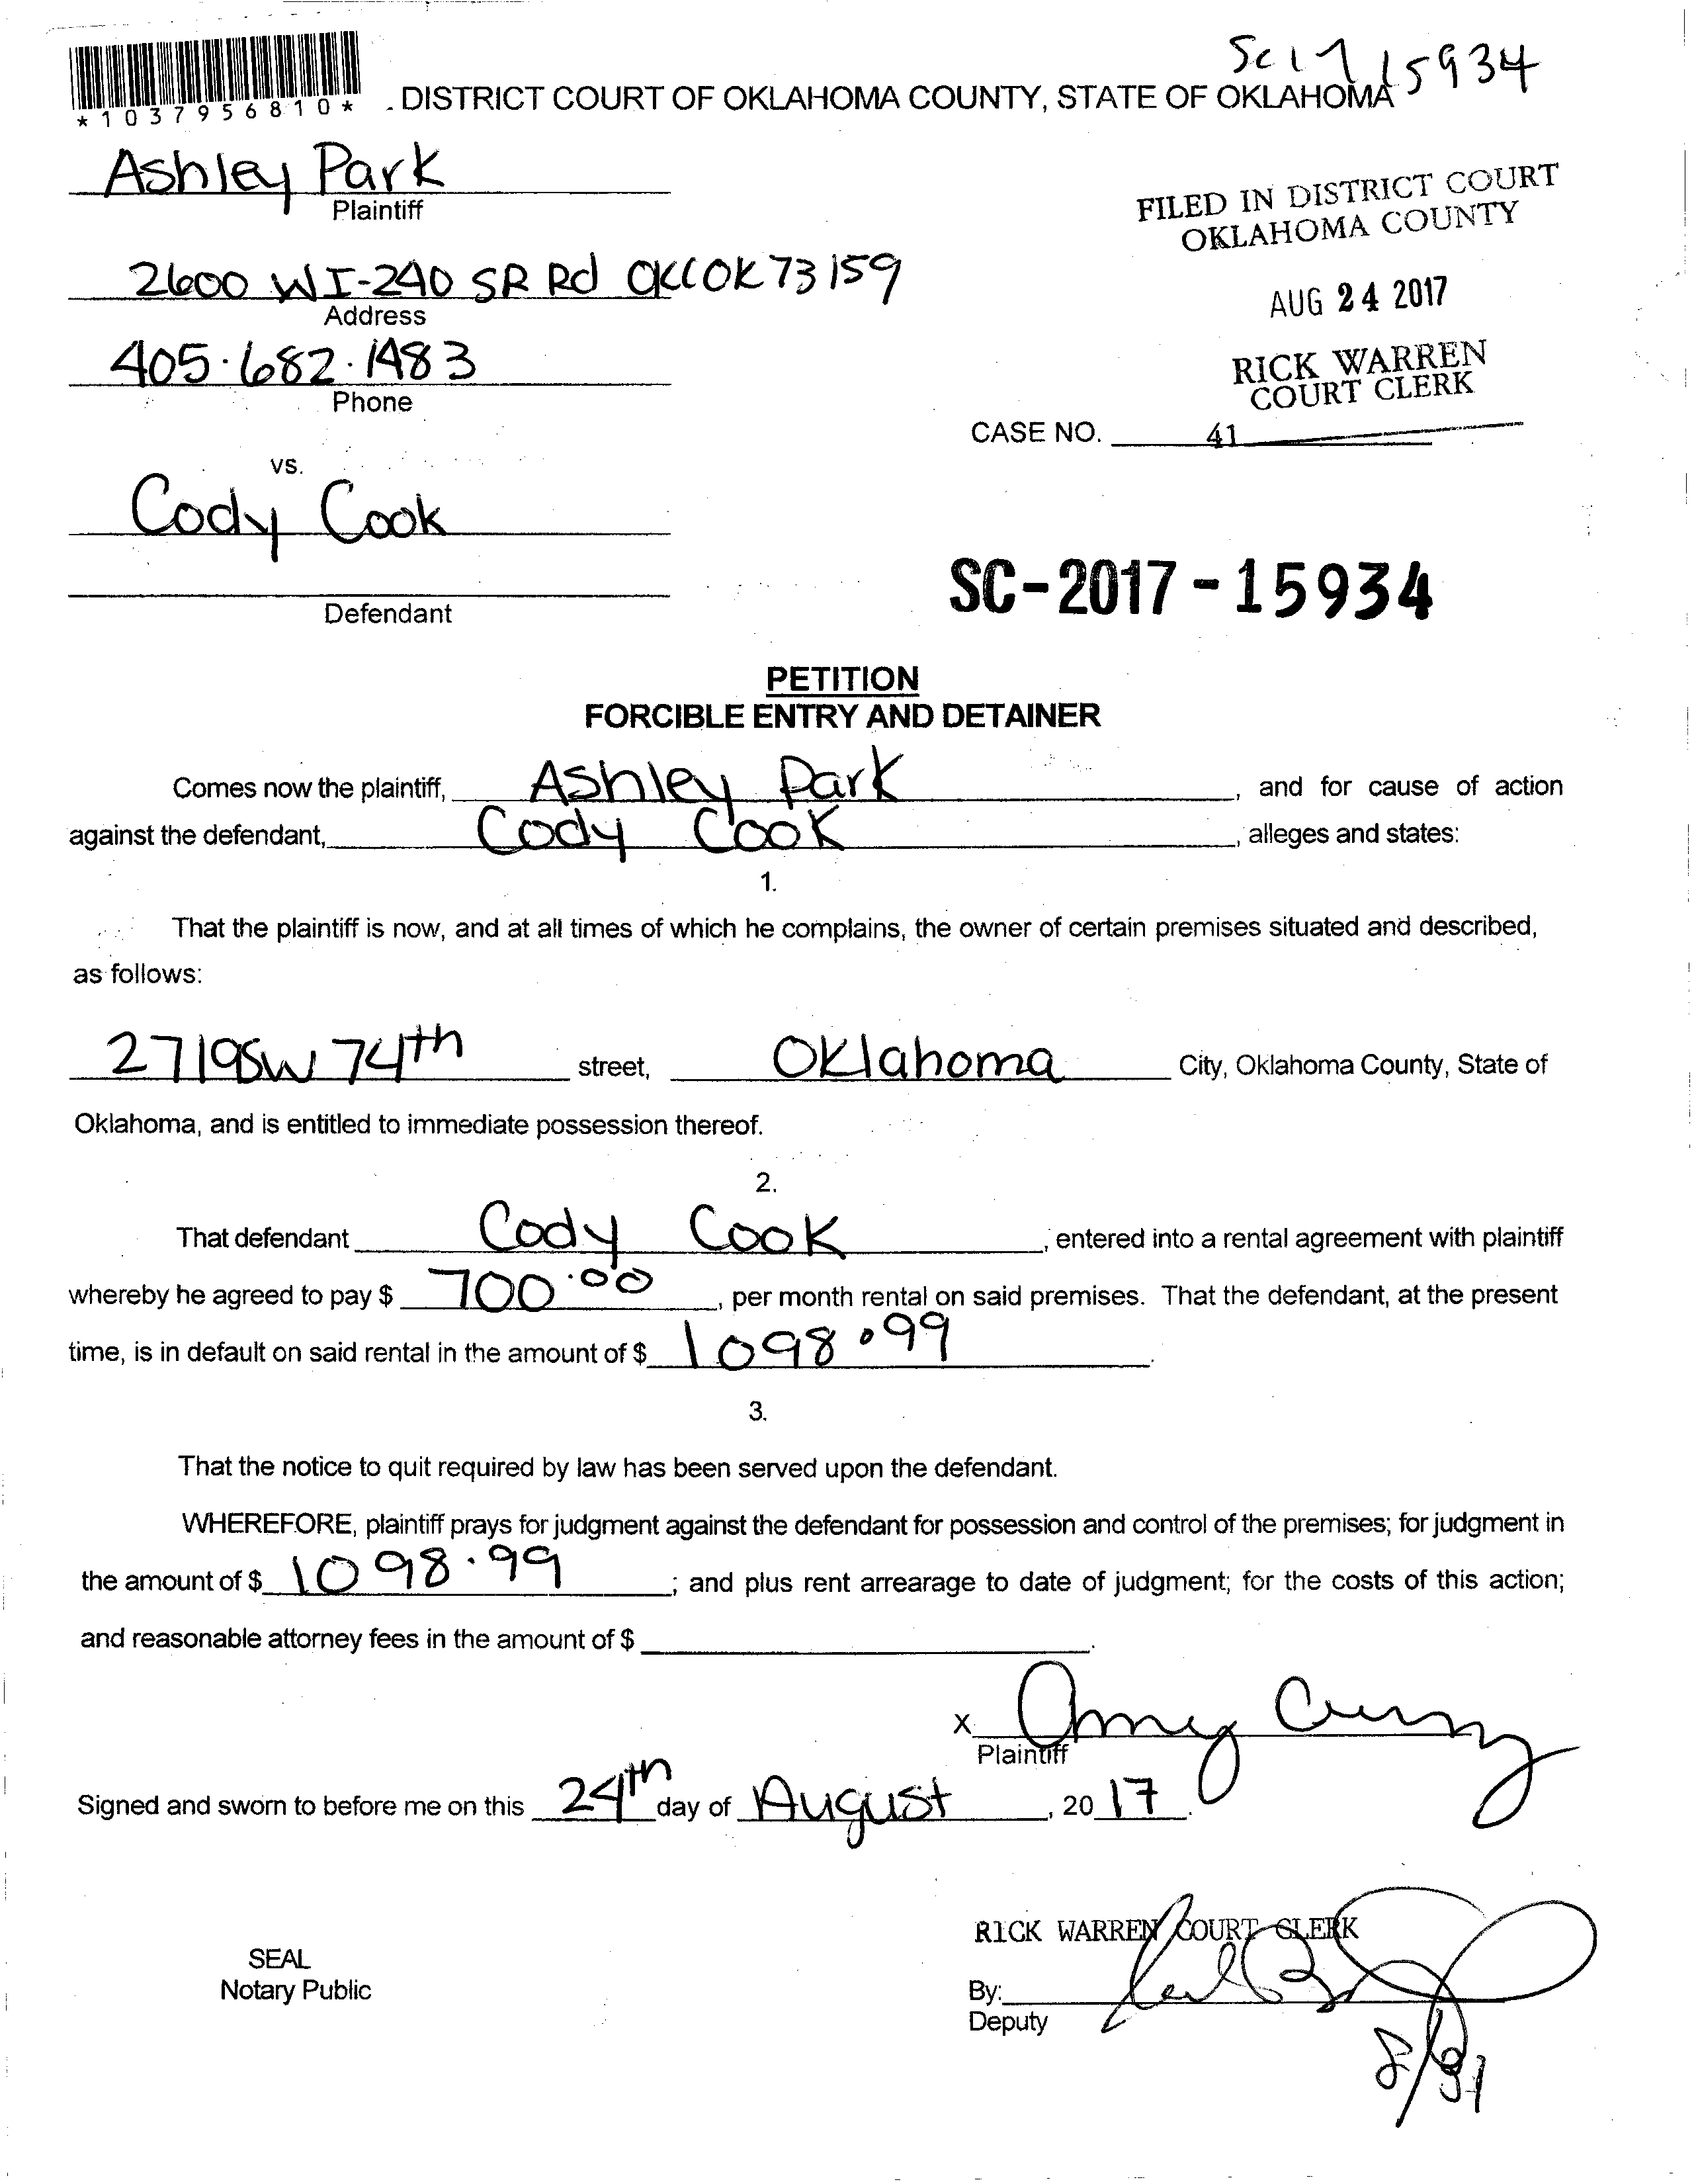 SC17 15934
*1037956810*
. DISTRICT COURT OF OKLAHOMA COUNTY, STATE OF OKLAHOMA
Ashley Park
Plaintiff
FILED IN DISTRICT COURT
OKLAHOMA COUNTY
2600 W I-240 SR Rd OKC OK 73159
Address
AUG 24 2017
405.682.1483
Phone
RICK WARREN
COURT CLERK
CASE NO. 41
vs.
Cody Cook
Defendant
SC-2017-15934
PETITION
FORCIBLE ENTRY AND DETAINER
Comes now the plaintiff, Ashley Park, and for cause of action
against the defendant, Cody Cook, alleges and states:
1.
That the plaintiff is now, and at all times of which he complains, the owner of certain premises situated and described,
as follows:
2719 SW 74th street, Oklahoma City, Oklahoma County, State of
Oklahoma, and is entitled to immediate possession thereof.
2.
That defendant Cody Cook, entered into a rental agreement with plaintiff
whereby he agreed to pay $ 700.00, per month rental on said premises. That the defendant, at the present
time, is in default on said rental in the amount of $ 1098.99.
3.
That the notice to quit required by law has been served upon the defendant.
WHEREFORE, plaintiff prays for judgment against the defendant for possession and control of the premises; for judgment in
the amount of $ 1098.99; and plus rent arrearage to date of judgment; for the costs of this action;
and reasonable attorney fees in the amount of $ .
x Amy
Plaintiff
Signed and sworn to before me on this 24th day of August, 2017.
RICK WARREN COURT CLERK
SEAL
Notary Public
By:
Deputy